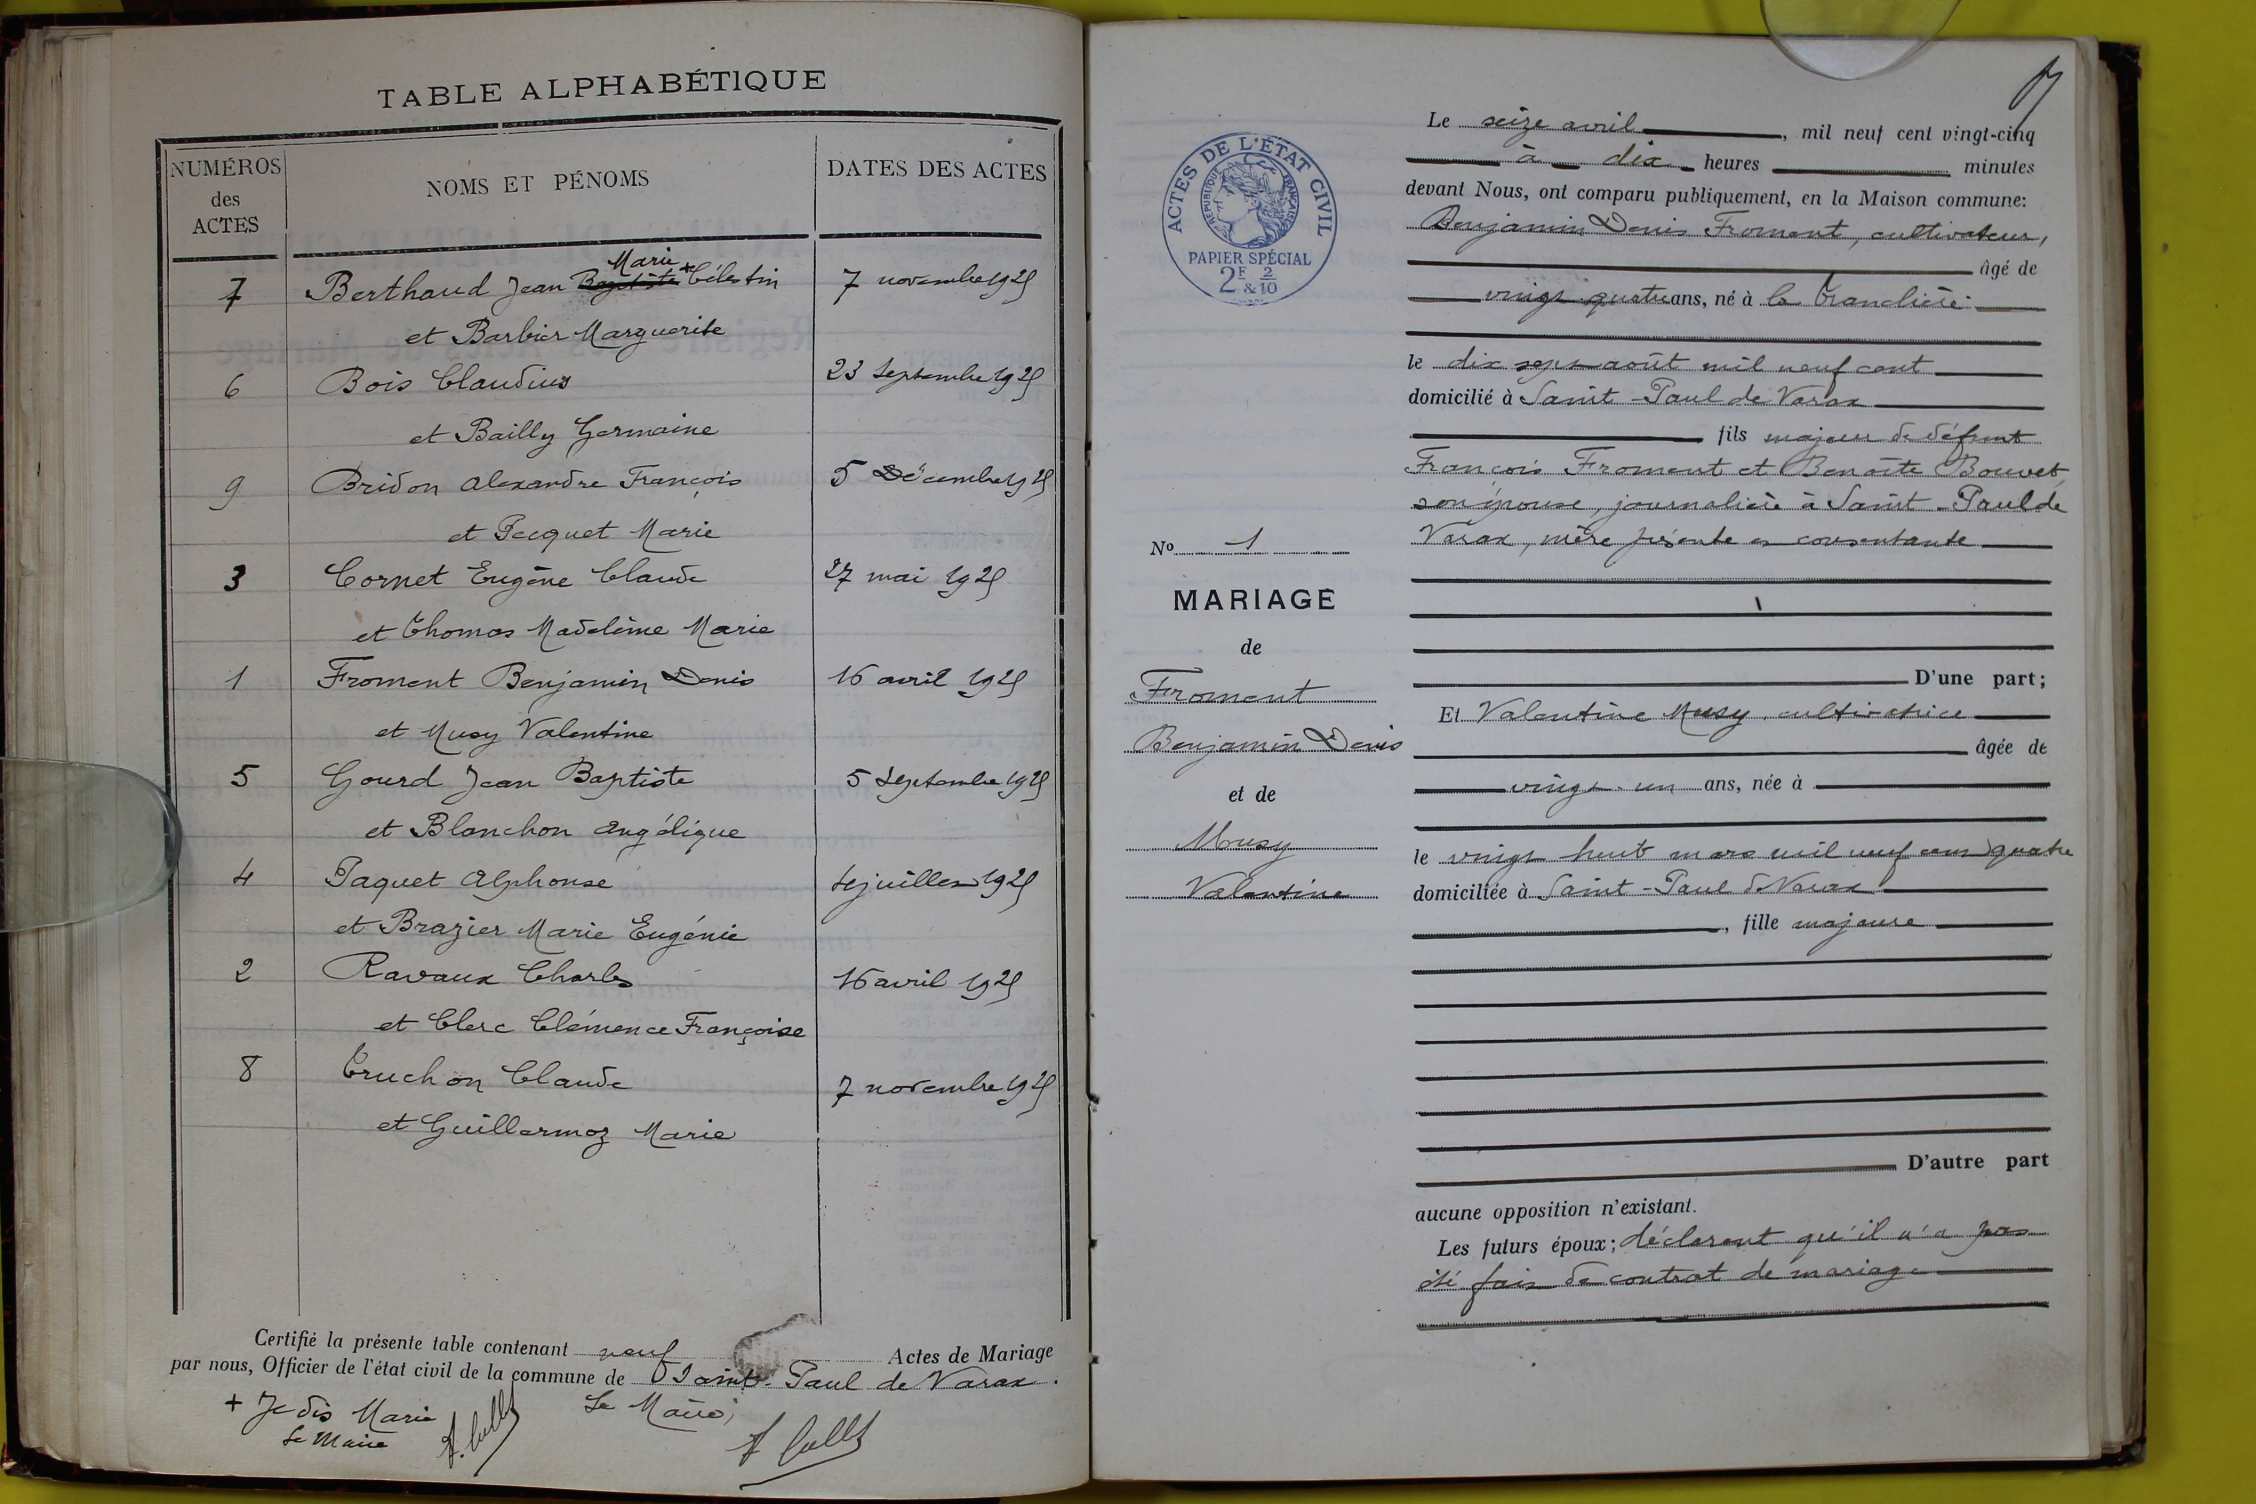 TABLE ALPHABÉTIQUE
NUMÉROS des ACTES
NOMS ET PÉNOMS
DATES DES ACTES
Marie +
7 Berthaud Jean Baptiste Célestin 7 novembre 1925
et Barbier Marguerite
6 Bois Claudius 23 Septembre 1925
et Bailly Germaine
9 Bridon Alexandre François 5 Décembre 1925
et Pecquet Marie
3 Cornet Eugène Claude 27 mai 1925
et Thomas Madeleine Marie
1 Froment Benjamin Denis 16 avril 1925
et Musy Valentine
5 Gourd Jean Baptiste 5 Septembre 1925
et Blanchon Angélique
4 Paquet Alphonse juillet 1925
et Brazier Marie Eugénie
2 Ravaux Charles 16 avril 1925
et Clerc Clémence Françoise
8 Truchon Claude 7 novembre 1925
et Guillermoz Marie
Certifié la présente table contenant neuf Actes de Mariage
par nous, Officier de l'état civil de la commune de Saint-Paul de Varax.
+ Je dis Marie
Le Maire
Le Maire,
ACTES DE L'ÉTAT CIVIL
RÉPUBLIQUE FRANÇAISE
PAPIER SPÉCIAL
2F & 2/10
No 1
MARIAGE
de
Froment
Benjamin Denis
et de
Musy
Valentine
Le seize avril, mil neuf cent vingt-cinq
à dix heures minutes
devant Nous, ont comparu publiquement, en la Maison commune:
Benjamin Denis Froment, cultivateur,
âgé de
vingt quatre ans, né à la Tranclière
le dix sept août mil neuf cent
domicilié à Saint-Paul de Varax
fils majeur de défunt
François Froment et Benoîte Bouvet
son épouse, journalière à Saint-Paul de
Varax, mère présente et consentante
D'une part;
Et Valentine Musy, cultivatrice
âgée de
vingt-un ans, née à
le vingt huit mars mil neuf cent quatre
domiciliée à Saint-Paul de Varax
, fille majeure
D'autre part
aucune opposition n'existant.
Les futurs époux; déclarent qu'il n'a pas
été fait de contrat de mariage